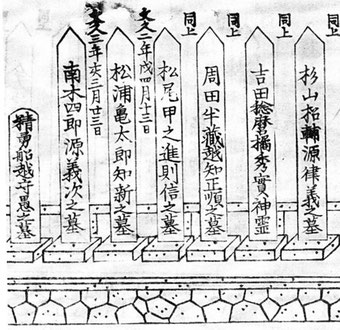 同上
杉山松輔源律義之墓
同上
吉田稔麿橘秀實神霊
同上
周田半藏越知正順之墓
同上
松尾甲之進則信之墓
文久二年戌四月十三日
松浦亀太郎知新之墓
文久三年亥二月廿三日
南木四郎源義次之墓
精勇船越守愚之墓